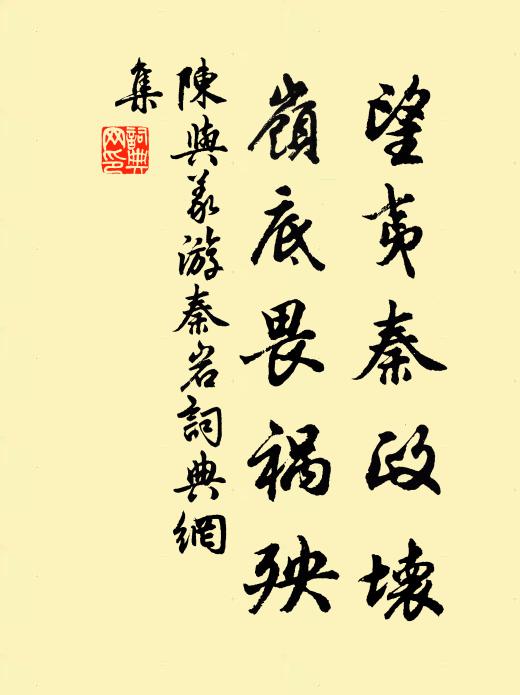 望夷秦政壞
嶺底畏禍殃
陳與義游秦岩詞典網
集
詞典網印